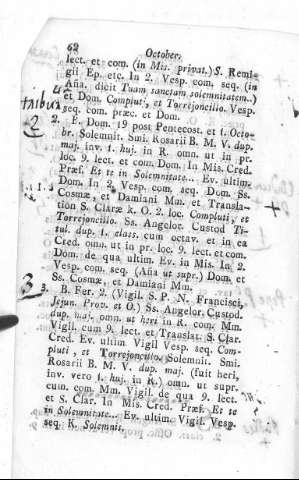 62 October.
lect. et com. (in Mis. privat.) S. Remi-
gii Ep. etc. In 2. Vesp. com. seq. (in
Aña. dicit Tuam sanctam solemnitatem..)
et Dom. Compluti, et Torrejoncilio. Vesp.
seq. com. præc. et Dom.
2. F. Dom. 19 post Pentecost. et 1. Octo-
br. Solemnit. Smi. Rosarii B. M. V. dup.
maj. inv. 1. huj. in R. omn. ut in pr.
loc. 9. lect. et com. Dom. In Mis. Cred.
Præf. Et te in Solemnitate... Ev. ultim.
Dom. In 2. Vesp. com. seq. Dom. Ss.
Cosmæ, et Damiani Mm. et Transla-
tion S. Claræ k. O. 2. loc. Compluti, et
Torrejoncilio. Ss. Angelor. Custod Ti-
tul. dup. 1. class. cum octav. et in ea
Cred. omn. ut in pr. loc. 9. lect. et com.
Dom. de qua ultim. Ev. in Mis. In 2.
Vesp. com. seq. (Aña ut supr.) Dom. et
Ss. Cosmæ, et Damiani Mm.
3. B. Fer. 2. (Vigil. S. P. N. Francisci,
Jejun. Prov. et O.) Ss. Angelor. Custod.
dup. maj. omn. ut heri in R. com. Mm.
Vigil. cum 9. lect. et Translat. S. Clar.
Cred. Ev. ultim Vigil Vesp. seq. Com-
pluti, et Torrejonculo. Solemnit. Smi.
Rosarii B. M. V. dup. maj. (fuit heri,
inv. vero 1. huj. in R.) omn. ut supr.
cum. com. Mm. Vigil. de qua 9. lect.
et S. Clar. In Mis. Cred. Præf. Et te
in Solemnitate... Ev. ultim. Vigil. Vesp.
seq. R. Solemnit.